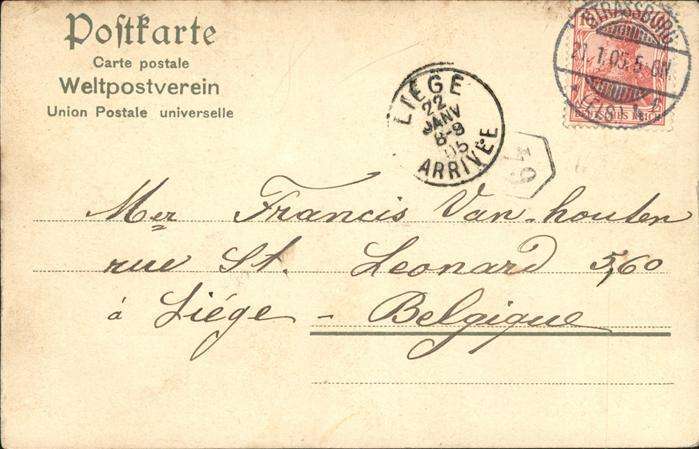 Postkarte
Carte postale
Weltpostverein
Union Postale universelle
STRASSBURG
21.1.05.5-6N
LIÉGE
22
JANV
8-9
05
ARRIVÉE
49
Mer Francis Van-houten
rue St. Leonard 560
á Liége - Belgique